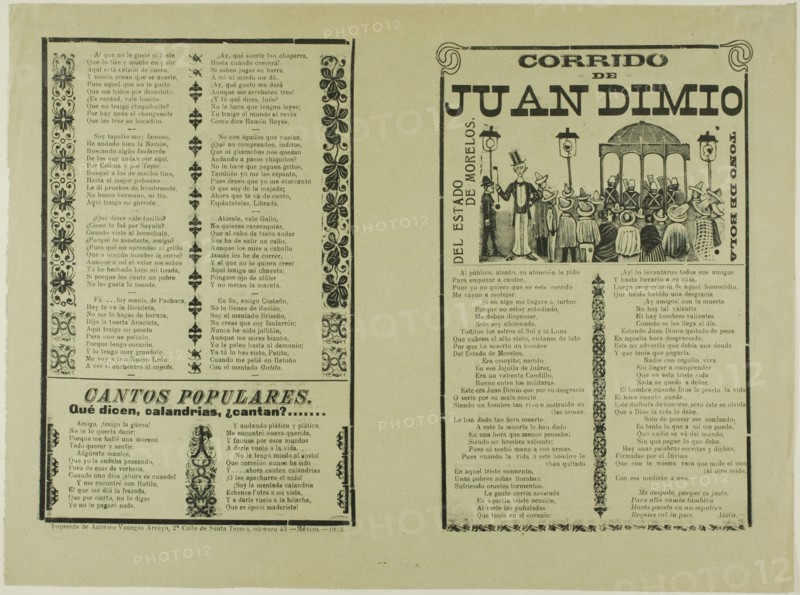 Al que no le guste el
Aquí está colzón de cuero,
Y nunca crean que se asuste,
Pues aquel que no le guste
Que me hable por derechito:
¿Es verdad, vale
Que no traiga chiquihuite?
Por hay anda el
Que les trae su bocadito.
Soy tapatío muy famoso,
He andado bien la Nación,
Buscando algún fanfarrón
De los que andan por aquí,
Por Colima y por Tepic
Busqué a los de mucho tino,
Hasta el mejor pelonino
Le di pruebas de hombrazote,
No hemos hermano, ni tío,
Aquí traigo mi garrote.
¿Qué dices vale
¿Cómo te fué por Sayula?
Cuando viste al
¿Porqué te asustaste, amigo?
¿Pues qué no aprenden al grillo
Que a ningún hombre le corre?
Aunque a mí el valor me sobre
Yo he bachado bien mi tienda,
Si porque les canta un pobre
No les gusta la tonada.
Fuí soy manís, de Pachuca,
Hay te va la Bicicleta,
No me lo hagas de boruca,
Dijo la tuerta Anacleta,
Aquí traigo mi peseta
Para uno de polinio,
Porque tengo corazón,
Y lo tengo muy grandote
Me voy a ir a Nuevo León
A ver si encuentro al coyote.
¡Ay, qué suerte tan chaparra,
Hasta cuándo crecerá!
Si saben jugar su barra,
A mí ni miedo me dá.
¡Ay, qué gusto me dará
Aunque me arrebaten tres!
¿Y tú qué dices, Inés?
No le hace que tengan leyes;
Yo traigo el mundo al revés
Como dice Ramón Reyes.
No son águilas que vuelan,
¿Qué no comprenden, inditos,
Que ni gilarachos nos quedan
Andando a pasos chiquitos?
No le hace que peguen gritos,
También yo me les espanto,
Pues dicen que yo me atarantо
O que soy de la majada;
Ahora que te va de canto,
Espántatelas, Librada.
Atórale, vale Gallo,
No quieras cacaraquiar,
Que al cabo de tanto andar
Nos ha de salir un callo,
Aunque los mire a caballo
Jamás les he de correr,
Y el que no lo quiera creer
Aquí traigo mi chaveta;
Póngase ojo de alfiler
Y no metan la maceta.
En fin, amigo Costeño,
No le tienes de ilusión,
Soy el mentado Briseño,
No creas que soy fanfarrón;
Nunca he sido julillón,
Aunque me mires bianito,
Yo le peleo hasta al demonio;
Ya tú lo has visto, Patito,
Cuando me pelié en Batoño
Con el mentado Gatito.
CANTOS POPULARES.
Qué dicen, calandrias, ¿cantan?.......
Amigo, ¡traigo la güena!
No te lo quería decir;
Porque me halló una morena
Todo querer y sentir.
Algúrate manís,
Que yo la andaba pensando,
Pero de esas de verbena,
Cuando uno dice ¡ahora es cuando!
Y me encontré con Botilo,
El que me dió la frazada,
Que por cierto, no lo digo
Yo no le pagaré nada.
Y andando plática y plática,
Me encontré nueva querida,
Y fuimos por esos mundos
A darle vuelo a la vida.
¡No le tengo miedo al susto!
Que correlón nunca he sido
Y....ahora canten calandrias
¡O les apachurro el nido!
¡Soy la mentada calandria
Echenme l'otra a su vista,
Y a darle vuelo a la hilacha,
Que es época maderista!
Imprenta de Antonio Vanegas Arroyo, 2ª Calle de Santa Teresa, número 43.—México.—1912.
CORRIDO
DE
JUAN DIMIO
DEL ESTADO
DE MORELOS.
TONO DE BOLA
Al público, atento, su atención le pido
Para empezar a cantar,
Pues yo no quiero que en este corrido
Me vayan a motejar.
Si en algo me llegare a turbar
Porque no estoy estudiado,
Me deben dispensar,
Solo soy aficionado.
Toditos los astros el Sol y la Luna
Que cubren el alto cielo, vístense de luto
Por que ha muerto un hombre
Del Estado de Morelos.
Era cruyilte; nacido
En ese Jojutla de Juárez,
Era un valiente Caudillo,
Bueno entre los militares.
Este era Juan Dimio que por su desgracia
O sería por su mala suerte
Siendo un hombre tan vivo e instruido en
(las armas,
Le han dado tan fiera muerte.
A este la muerte le han dado
En una hora que menos pensaba;
Siendo un hombre valiente;
Pues ni metió mano a sus armas.
Pues cuando la vida a este hombre le
(han quitado
En aquel triste momento,
Unas pobres niñas llorabаn
Sufriendo crueles tormentos.
La gente corría asustada
En aquella triste ocasión,
Al verle las puñaladas
Que tenía en el corazón
¡Ay! lo levantaron todos sus amigos
Y hasta llevarlo a su casa,
Luego preguntaron de aquel homicidio,
Que había habido una desgracia
¡Ay amigos! con la muerte
No hay tal valentía
Ni hay hombres valientes
Cuando se les llega el día.
Estando Juan Dimio quitado de pena
En aquella hora desgraciada;
Este no advertía que debía una deuda
Y que tenía que pagarla.
Nadie con orgullo viva
Sin llegar a comprender
Que en esta triste vida
Nada se queda a deber.
El hombre cuando Dios le presta la vida
El hace cuanto puede
Este disfruta de honores, pero éste se olvida
Que a Dios la vida le debe.
Solo de pensar me confundo;
Es tanto lo que a mí me puede,
Que nadie se vá del mundo,
Sin que pague lo que debe.
Hay unas palabras escritas y dichas,
Firmadas por el Divino
Que con la misma vara que mide al uno
(al otro mide,
Con esa medirán a uno.
Me despido, porque es justo,
Para allá vamos también
Hasta puesto en un sepulcro
Requies cat in pace. Amén.